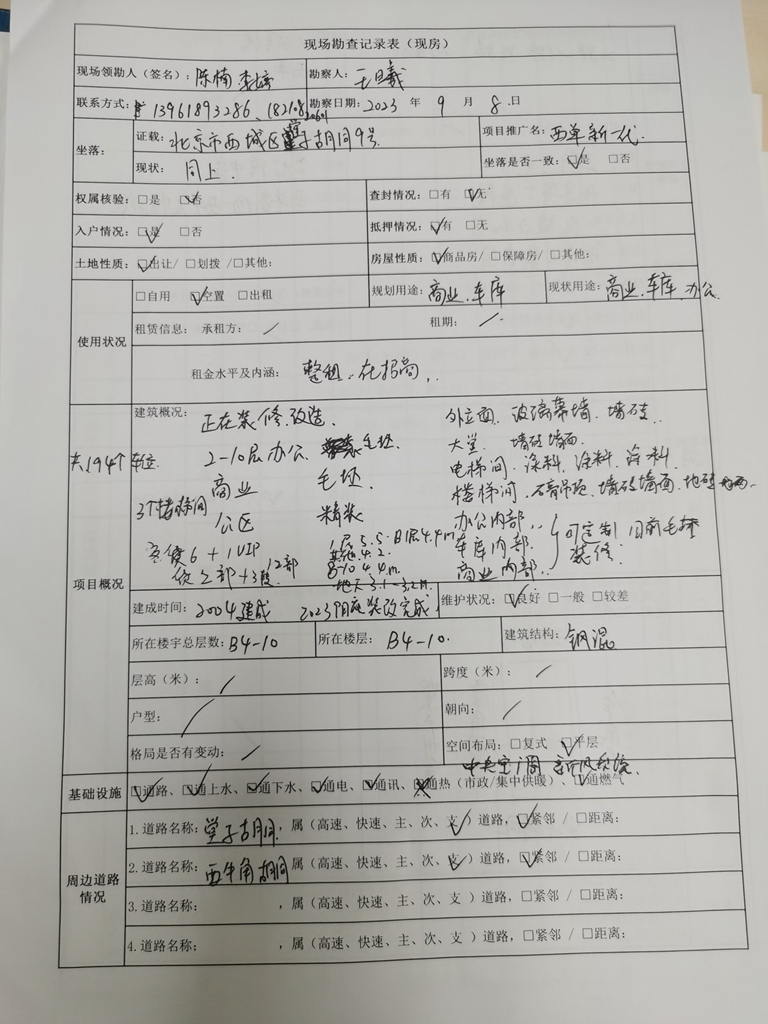 现场勘查记录表（现房）
现场领勘人（签名）：陈楠 李 勘察人：王曦
联系方式：13961893286、18210820601 勘察日期：2023 年 9 月 8 日
坐落： 证载：北京市西城区堂子胡同9号 项目推广名：西单新一代
现状：同上. 坐落是否一致：☑是 □否
权属核验：□是 ☑否 查封情况：□有 ☑无
入户情况：☑是 □否 抵押情况：☑有 □无
土地性质：☑出让/ □划拨 /□其他: 房屋性质：☑商品房/ □保障房/ □其他:
使用状况 □自用 ☑空置 □出租 规划用途：商业、车库 现状用途：商业、车库、办公
租赁信息： 承租方： / 租期： /
租金水平及内涵： 整租、在招商..
项目概况 建筑概况： 正在装修改造. 外立面、玻璃幕墙、墙砖.
共194个车位 2-10层办公、毛坯. 大堂 墙砖墙面.
商业 毛坯. 电梯间、涂料、涂料、涂料
3个楼梯间 公区 精装 楼梯间、石膏吊顶、墙砖墙面、地砖
客梯6+1VIP 1层5.5、B1层4.4m 办公内部..
12部 其他4.2 车库内部. 可定制 目前毛坯
4.4m. 商业内部.. 装修.
3.1-3.2m.
建成时间：2004建成 2023 装改完成 维护状况：☑良好 □一般 □较差
所在楼宇总层数：B4-10 所在楼层： B4-10. 建筑结构：钢混
层高（米）： / 跨度（米）： /
户型： / 朝向： /
格局是否有变动： / 空间布局：□复式 ☑平层
中央空调 新风系统.
基础设施 ☑通路、☑通上水、☑通下水、☑通电、☑通讯、☒通热（市政/集中供暖）、☑通燃气
周边道路情况 1.道路名称：堂子胡同，属（高速、快速、主、次、支✓）道路，☑紧邻 / □距离:
2.道路名称：西牛角胡同 属（高速、快速、主、次、支✓）道路，☑紧邻 / □距离:
3.道路名称： ，属（高速、快速、主、次、支 ）道路，□紧邻 / □距离:
4.道路名称： ，属（高速、快速、主、次、支 ）道路，□紧邻 / □距离: